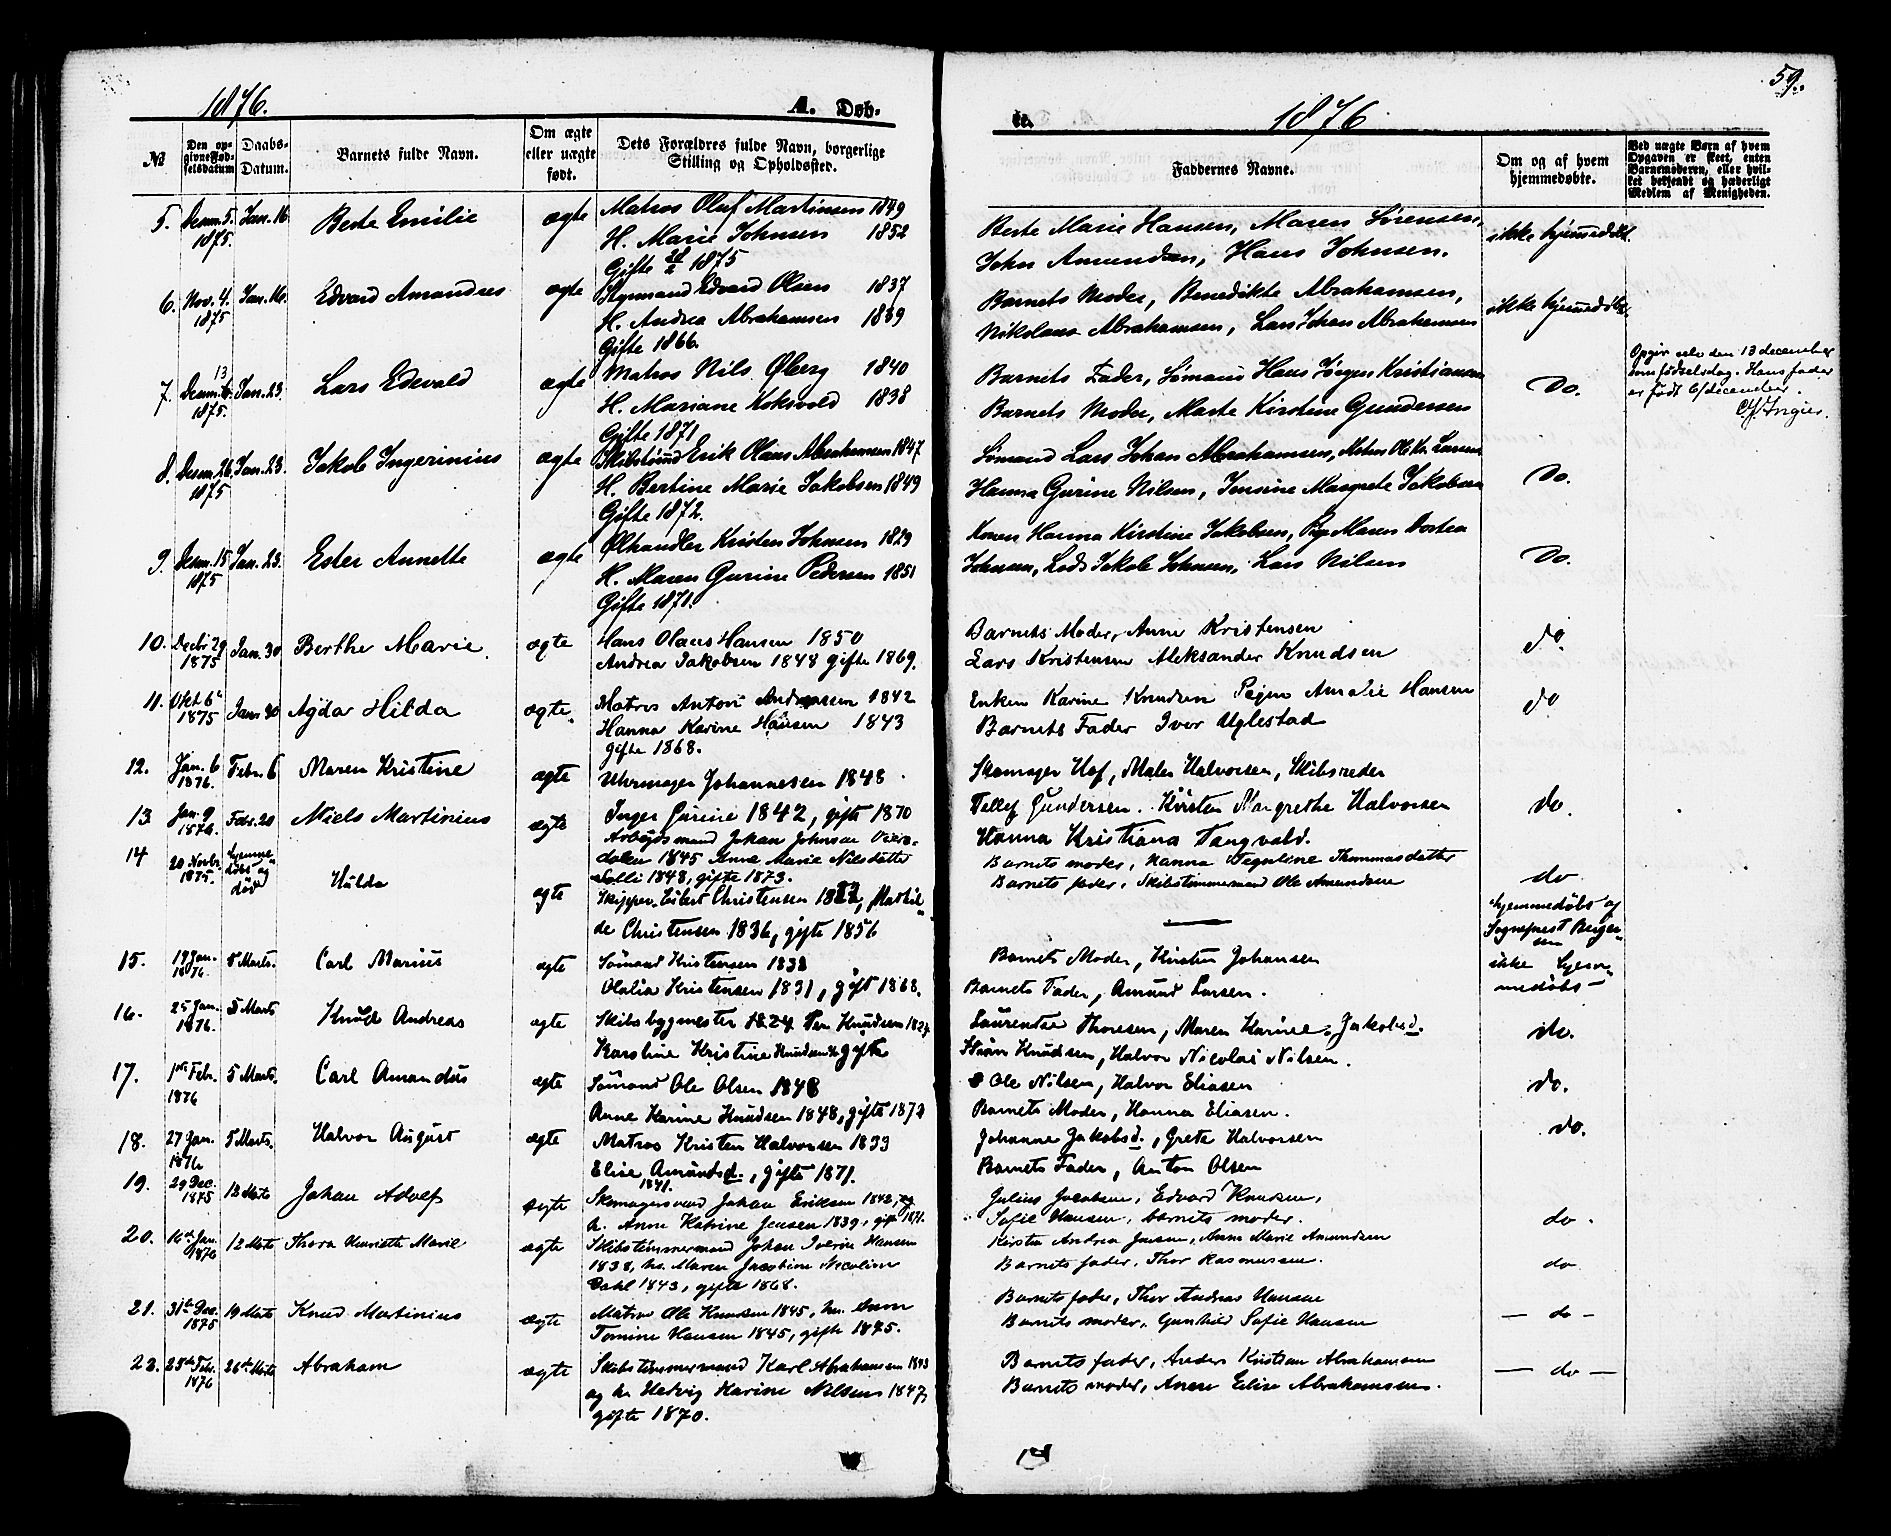 59.
1876. A. Døb-
te. 1876
No
Den op-
givne Fød-
selsdatum
Daabs-
Datum.
Barnets fulde Navn.
Om ægte
eller uægte
født.
Dets Forældres fulde Navn, borgerlige
Stilling og Opholdssted.
Faddernes Navne.
Om og af hvem
hjemmedøbte.
Ved uægte Børn af hvem
Opgaven er skeet, enten
Barnemoderen, eller hvil-
ket bekjendt og hæderligt
Medlem af Menigheden.
5. Desem. 5. Jan. 16. Berte Emilie ægte Matros Oluf Martinsen 1849
1875. H. Marie Johnsen 1852
Gifte 1875
Berte Marie Hansen, Maren Sørensen,
John Amundsen, Hans Johnsen.
ikke hjemmedøbt.
6. Nov. 4. Jan. 16. Edvard Amandus ægte Styrmand Edvard Olsen 1837
1875 H. Andrea Abrahamsen 1839
Gifte 1866.
Barnets Moder, Benedikte Abrahamsen,
Nikolaus Abrahamsen, Lars Johan Abrahamsen
ikke hjemmedøbt.
7. Desem. 6. 13 Jan. 23. Lars Edevald ægte Matros Nils Øberg 1840
1875. H. Mariane Koksvold 1838
Gifte 1871
Barnets Fader, Sømand Hans Jørgen Kristiansen
Barnets Moder, Marte Kirstine Gundersen
Do.
Opgir selv den 13 december
som fødselsdag. Hans fader
er født 6/december.
8. Desem. 26. Jan. 23. Jakob Ingerinius ægte Skibstømd Erik Olaus Abrahamsen 1847
1875 H. Bertine Marie Jakobsen 1849
Gifte 1872.
Sømand Lars Johan Abrahamsen, Matros Ol. Kr. Larsen
Hanna Gurine Nilsen, Jensine Margrete Jakobsen
Do.
9. Desem. 15 Jan. 23. Ester Annette ægte Ølhandler Kristen Johnsen 1829
1875 H. Maren Gurine Pedersen 1851
Gifte 1871.
Konen Hanna Kirstine Jakobsen, Pige Maren Dortea
Johnsen, Lods Jakob Johnsen, Lars Nilsen
Do.
10. Decbr 29 1875 Jan. 30 Berthe Marie. ægte Hans Olaus Hansen 1850
Andrea Jakobsen 1848 gifte 1869.
Barnets Moder, Anne Kristensen
Lars Kristensen Aleksander Knudsen
do.
11. Okt. 6 1875 Jan. 30 Agda Hilda ægte. Matros Anton Andersen 1842
Hanna Karine Hansen 1843
gifte 1868.
Enken Karine Knudsen Pigen Amalie Hansen
Barnets Fader Iver Uglestad
do
12. Jan. 6 1876. Febr. 6 Maren Kristine ægte Uhrmager Johannesen 1848
Inger Gurine 1842, gifte 1870
Skomager Hof, Maler Halvorsen, Skibsreder
Tellef Gundersen. Kirsten Margrethe Halvorsen
Hanna Kristiana Tangvald.
do.
13 Jan. 9 1876. Febr. 20 Niels Martinius ægte Arbejdsmand Johan Johnsen
dalen 1845 Anne Marie Nilsdatter
Solli 1848, gifte 1873.
Barnets moder, Hanna Thommasdatter
Barnets fader, Skibstømmermand Ole Amundsen
do
14 20 Novbr. 1875. hjemme-
døbt og
død
Hulda ægte Skipper Christensen Mathil-
de Christensen 1836, gifte 1856
hjemmedøbt af
Sogneprest Birger-
sen
15. 19 Jan. 1876. 5 Marts. Carl Marius ægte Sømand Kristensen 1838
Olalia Kristensen 1831, gift 1868.
Barnets Moder, Kirsten Johansen
Barnets Fader, Amund Larsen.
ikke hjem-
medøbt
16. 25 Jan. 1876. 5 Marts Knud Andreas ægte Skibsbygmester 1824 Per Knudsen 1824
Karoline Kristine Knudsen gifte
Laurentse Thoresen, Maren Karine Jakobsd.
Knudsen, Halvor Nicolai Nilsen.
do.
17. 1ste Febr. 1876 5 Marts. Carl Amandus ægte Sømand Ole Olsen 1848
Anne Karine Knudsen 1848, gifte 1872
Ole Nilsen, Halvor Eliasen
Barnets Moder, Hanna Eliasen.
do.
18. 27 Jan. 1876 5 Marts. Halvor August ægte Matros Kristen Halvorsen 1833
Elise Amundsd., gifte 1871.
1841.
Johanne Jakobsd., Grete Halvorsen
Barnets Fader, Anton Olsen
do.
19. 29 Dec. 1875 12 Mts Johan Adolf ægte Skomagersvend Johan Eriksen 1842, og
h. Anne Katrine Jensen 1839, gift 1871.
Julius Jacobsen, Edvard Knudsen,
Sofie Hansen, barnets moder.
do.
20. 16de Jan. 1876 12 Mts Thora Henriette Marie ægte Skibstømmermand Johan Iverin Hansen
1838, hu. Maren Jacobine Nicoline
Dahl 1843, gifte 1868.
Kirsten Andrea Jensen, Anne Marie Amundsen
Barnets fader, Thor Rasmussen.
do
21. 31te Dec. 1875 19 Mts Knud Martinius ægte Matros Ole Knudsen 1845, hu. Anne
Tomine Hansen 1845, gifte 1875.
Barnets fader, Thor Andreas Hansen
Barnets moder, Gunhild Sofie Hansen
— do —
22. 25de Febr. 1876 26de Mts Abraham ægte Skibstømmermand Karl Abrahamsen 1843
og h. Hedvig Karine Nilsen 1847,
gifte 1870.
Barnets fader, Anders Kristian Abrahamsen
Barnets moder, Anne Elise Abrahamsen.
— do —